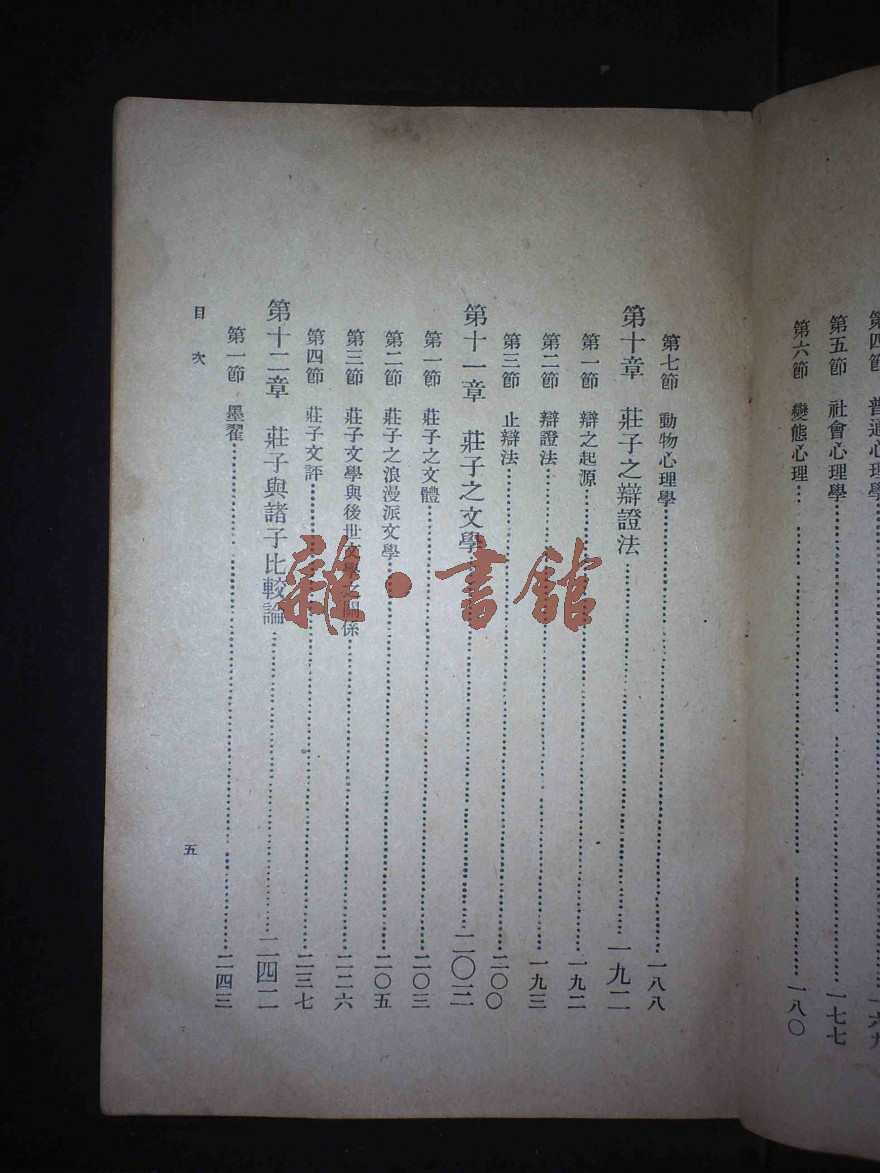 第四節 普通心理學……一六九
第五節 社會心理學……一七七
第六節 變態心理……一八〇
第七節 動物心理學……一八八
第十章 莊子之辯證法……一九二
第一節 辯之起源……一九二
第二節 辯證法……一九三
第三節 止辯法……二〇〇
第十一章 莊子之文學……二〇三
第一節 莊子之文體……二〇三
第二節 莊子之浪漫派文學……二〇五
第三節 莊子文學與後世文學之關係……二二六
第四節 莊子文評……二三七
第十二章 莊子與諸子比較論……二四二
第一節 墨翟……二四三
目次
五
雜·書館